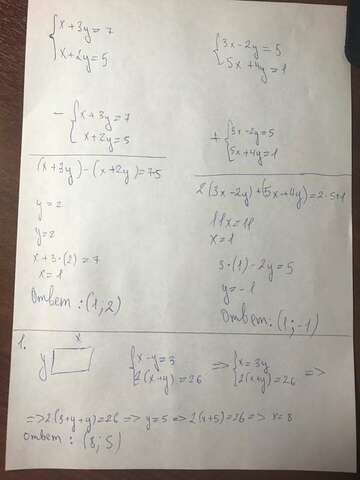 {x+3y=7
x+2y=5
- {x+3y=7
x+2y=5
(x+3y)-(x+2y)=7-5
y=2
y=2
x+3·(2)=7
x=1
Ответ: (1;2)
{3x-2y=5
5x+4y=1
+ {3x-2y=5
5x+4y=1
2(3x-2y)+(5x+4y)=2·5+1
11x=11
x=1
3·(1)-2y=5
y=-1
Ответ: (1;-1)
1.
x
y
{x-y=3
2(x+y)=26
=> {x=3y
2(x+y)=26 =>
=>2(3+y+y)=26=>y=5=>2(x+5)=26=>x=8
Ответ: (8;5)